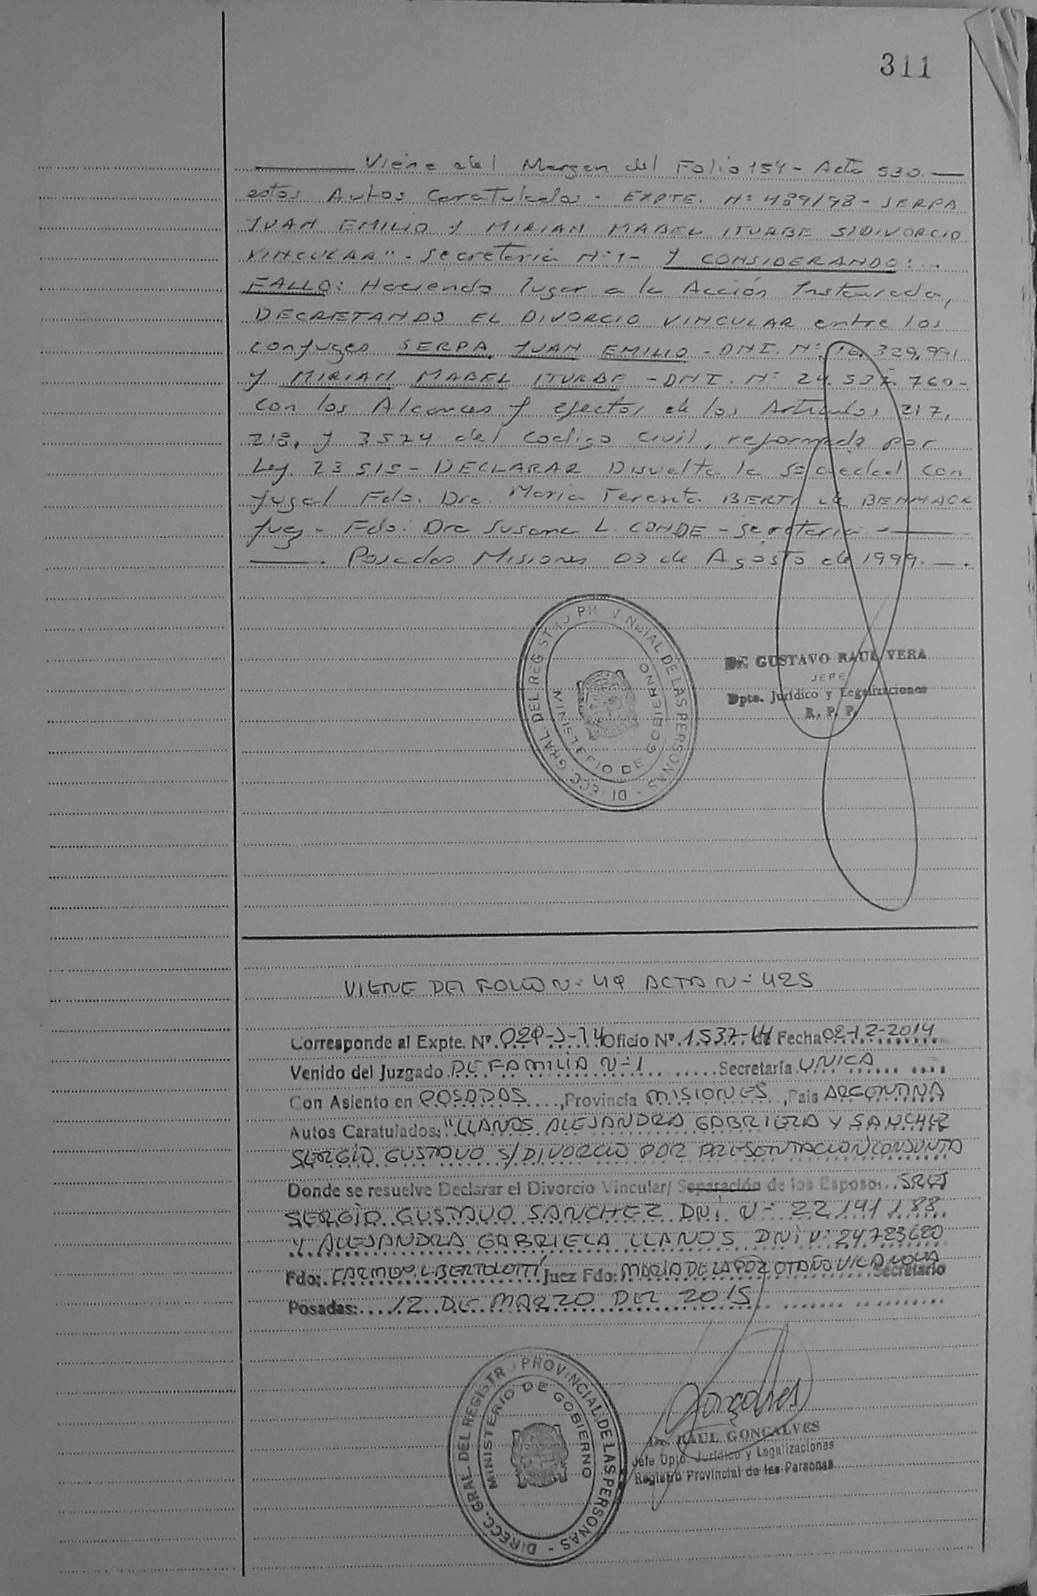 311
Viene del Margen del Folio 154 - Acta 530.
estos Autos Caratulados - EXPTE. Nº 489/98 - SERPA
JUAN EMILIO Y MIRIAM MABEL ITURBE S/DIVORCIO
VINCULAR" - Secretaria Nº 1 - Y CONSIDERANDO: .
FALLO: Haciendo lugar a la Acción Instaurada,
DECRETANDO EL DIVORCIO VINCULAR entre los
conyuges SERPA, JUAN EMILIO - DNI. Nº 16.329.991
y MIRIAM MABEL ITURBE - DNI. Nº 24.537.760-
con los Alcances y efectos de los Articulos 217,
218, y 3574 del Codigo Civil, reformado por
Ley 23515 - DECLARAR Disuelta la Sociedad Con
yugal Fdo. Dra. Maria Teresita BERTI de
Juez - Fdo. Dra Susana L. CONDE - Secretaria -
. Posadas Misiones 03 de Agosto de 1999. - .
DIRECC. GRAL. DEL REGISTRO PROVINCIAL DE LAS PERSONAS
MINISTERIO DE GOBIERNO
GUSTAVO RAUL VERA
JEFE
Dpto. Jurídico y Legalizaciones
R. P. P.
VIENE DEL FOLIO Nº 49 ACTA Nº 425
Corresponde al Expte. Nº 029-J-14 Oficio Nº 1537-14 de Fecha 02-12-2014
Venido del Juzgado DE FAMILIA Nº 1 Secretaría UNICA
Con Asiento en POSADAS, Provincia MISIONES, País ARGENTINA
Autos Caratulados: "LLANOS ALEJANDRA GABRIELA Y SANCHEZ
SERGIO GUSTAVO S/DIVORCIO POR PRESENTACION CONJUNTA
Donde se resuelve Declarar el Divorcio Vincular/ Separación de los Esposos
SERGIO GUSTAVO SANCHEZ DNI Nº 22.141.188
Y ALEJANDRA GABRIELA LLANOS DNI Nº 24723620
Fdo: L BERTOLOTTI Juez Fdo: MARIA DE LA PAZ OTAÑO VILANOVA Secretario
Posadas: 12 DE MARZO DEL 2015
DIRECC. GRAL. DEL REGISTRO PROVINCIAL DE LAS PERSONAS
MINISTERIO DE GOBIERNO
Gonçalves
Dr. RAUL GONCALVES
Jefe Dpto. Jurídico y Legalizaciones
Registro Provincial de las Personas